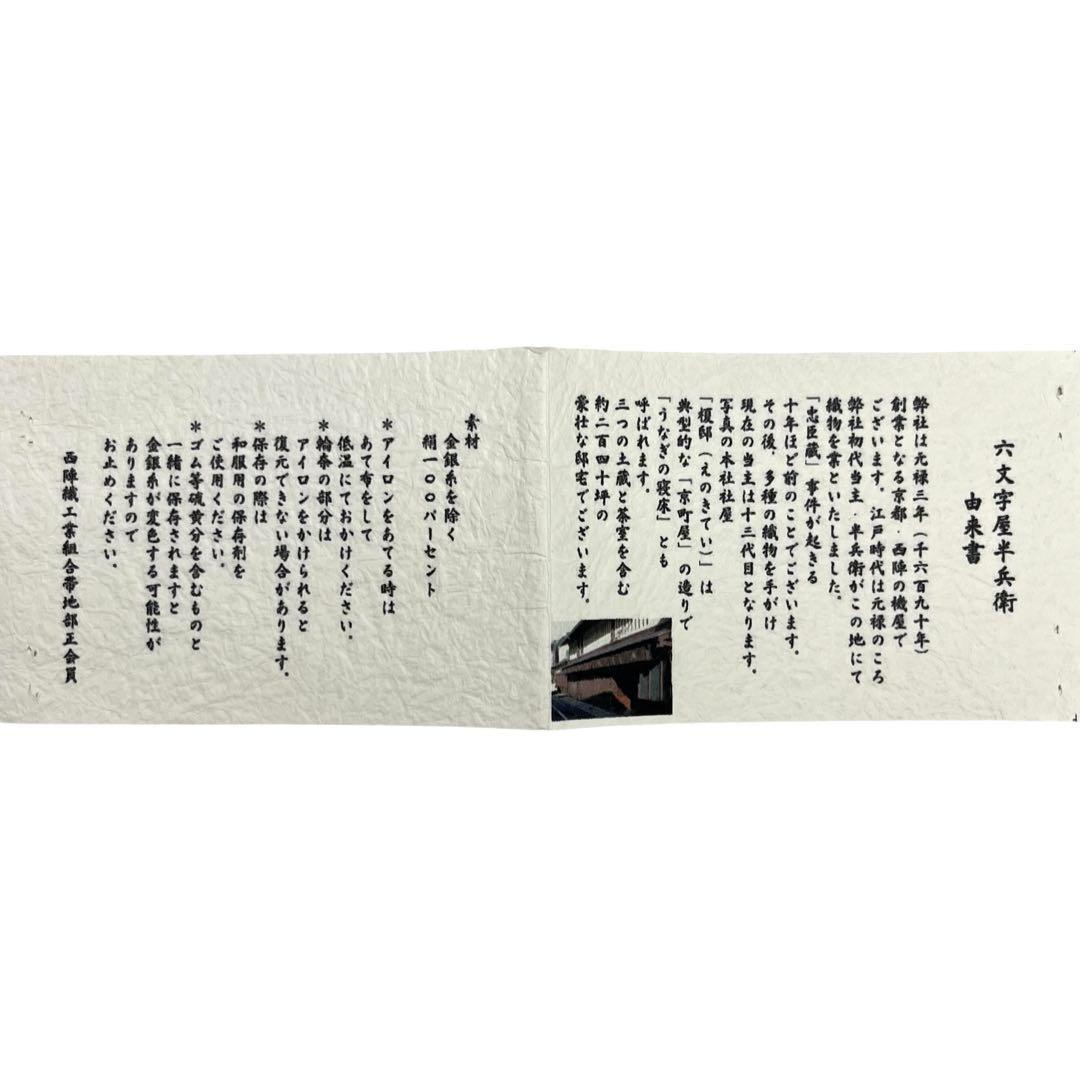 六文字屋半兵衛
由来書
弊社は元禄三年（千六百九十年）
創業となる京都・西陣の機屋で
ございます。江戸時代は元禄のころ
弊社初代当主・半兵衛がこの地にて
織物を業といたしました。
「忠臣蔵」事件が起きる
十年ほど前のことでございます。
その後、多種の織物を手がけ
現在の当主は十三代目となります。
写真の本社社屋
「榎邸（えのきてい）」は
典型的な「京町屋」の造りで
「うなぎの寝床」とも
呼ばれます。
三つの土蔵と茶室を含む
約二百四十坪の
豪壮な邸宅でございます。
素材
金銀糸を除く
絹一００パーセント
＊アイロンをあてる時は
あて布をして
低温にておかけください。
＊輪奈の部分は
アイロンをかけられると
復元できない場合があります。
＊保存の際は
和服用の保存剤を
ご使用ください。
＊ゴム等硫黄分を含むものと
一緒に保存されますと
金銀糸が変色する可能性が
ありますので
お止めください。
西陣織工業組合帯地部正会員